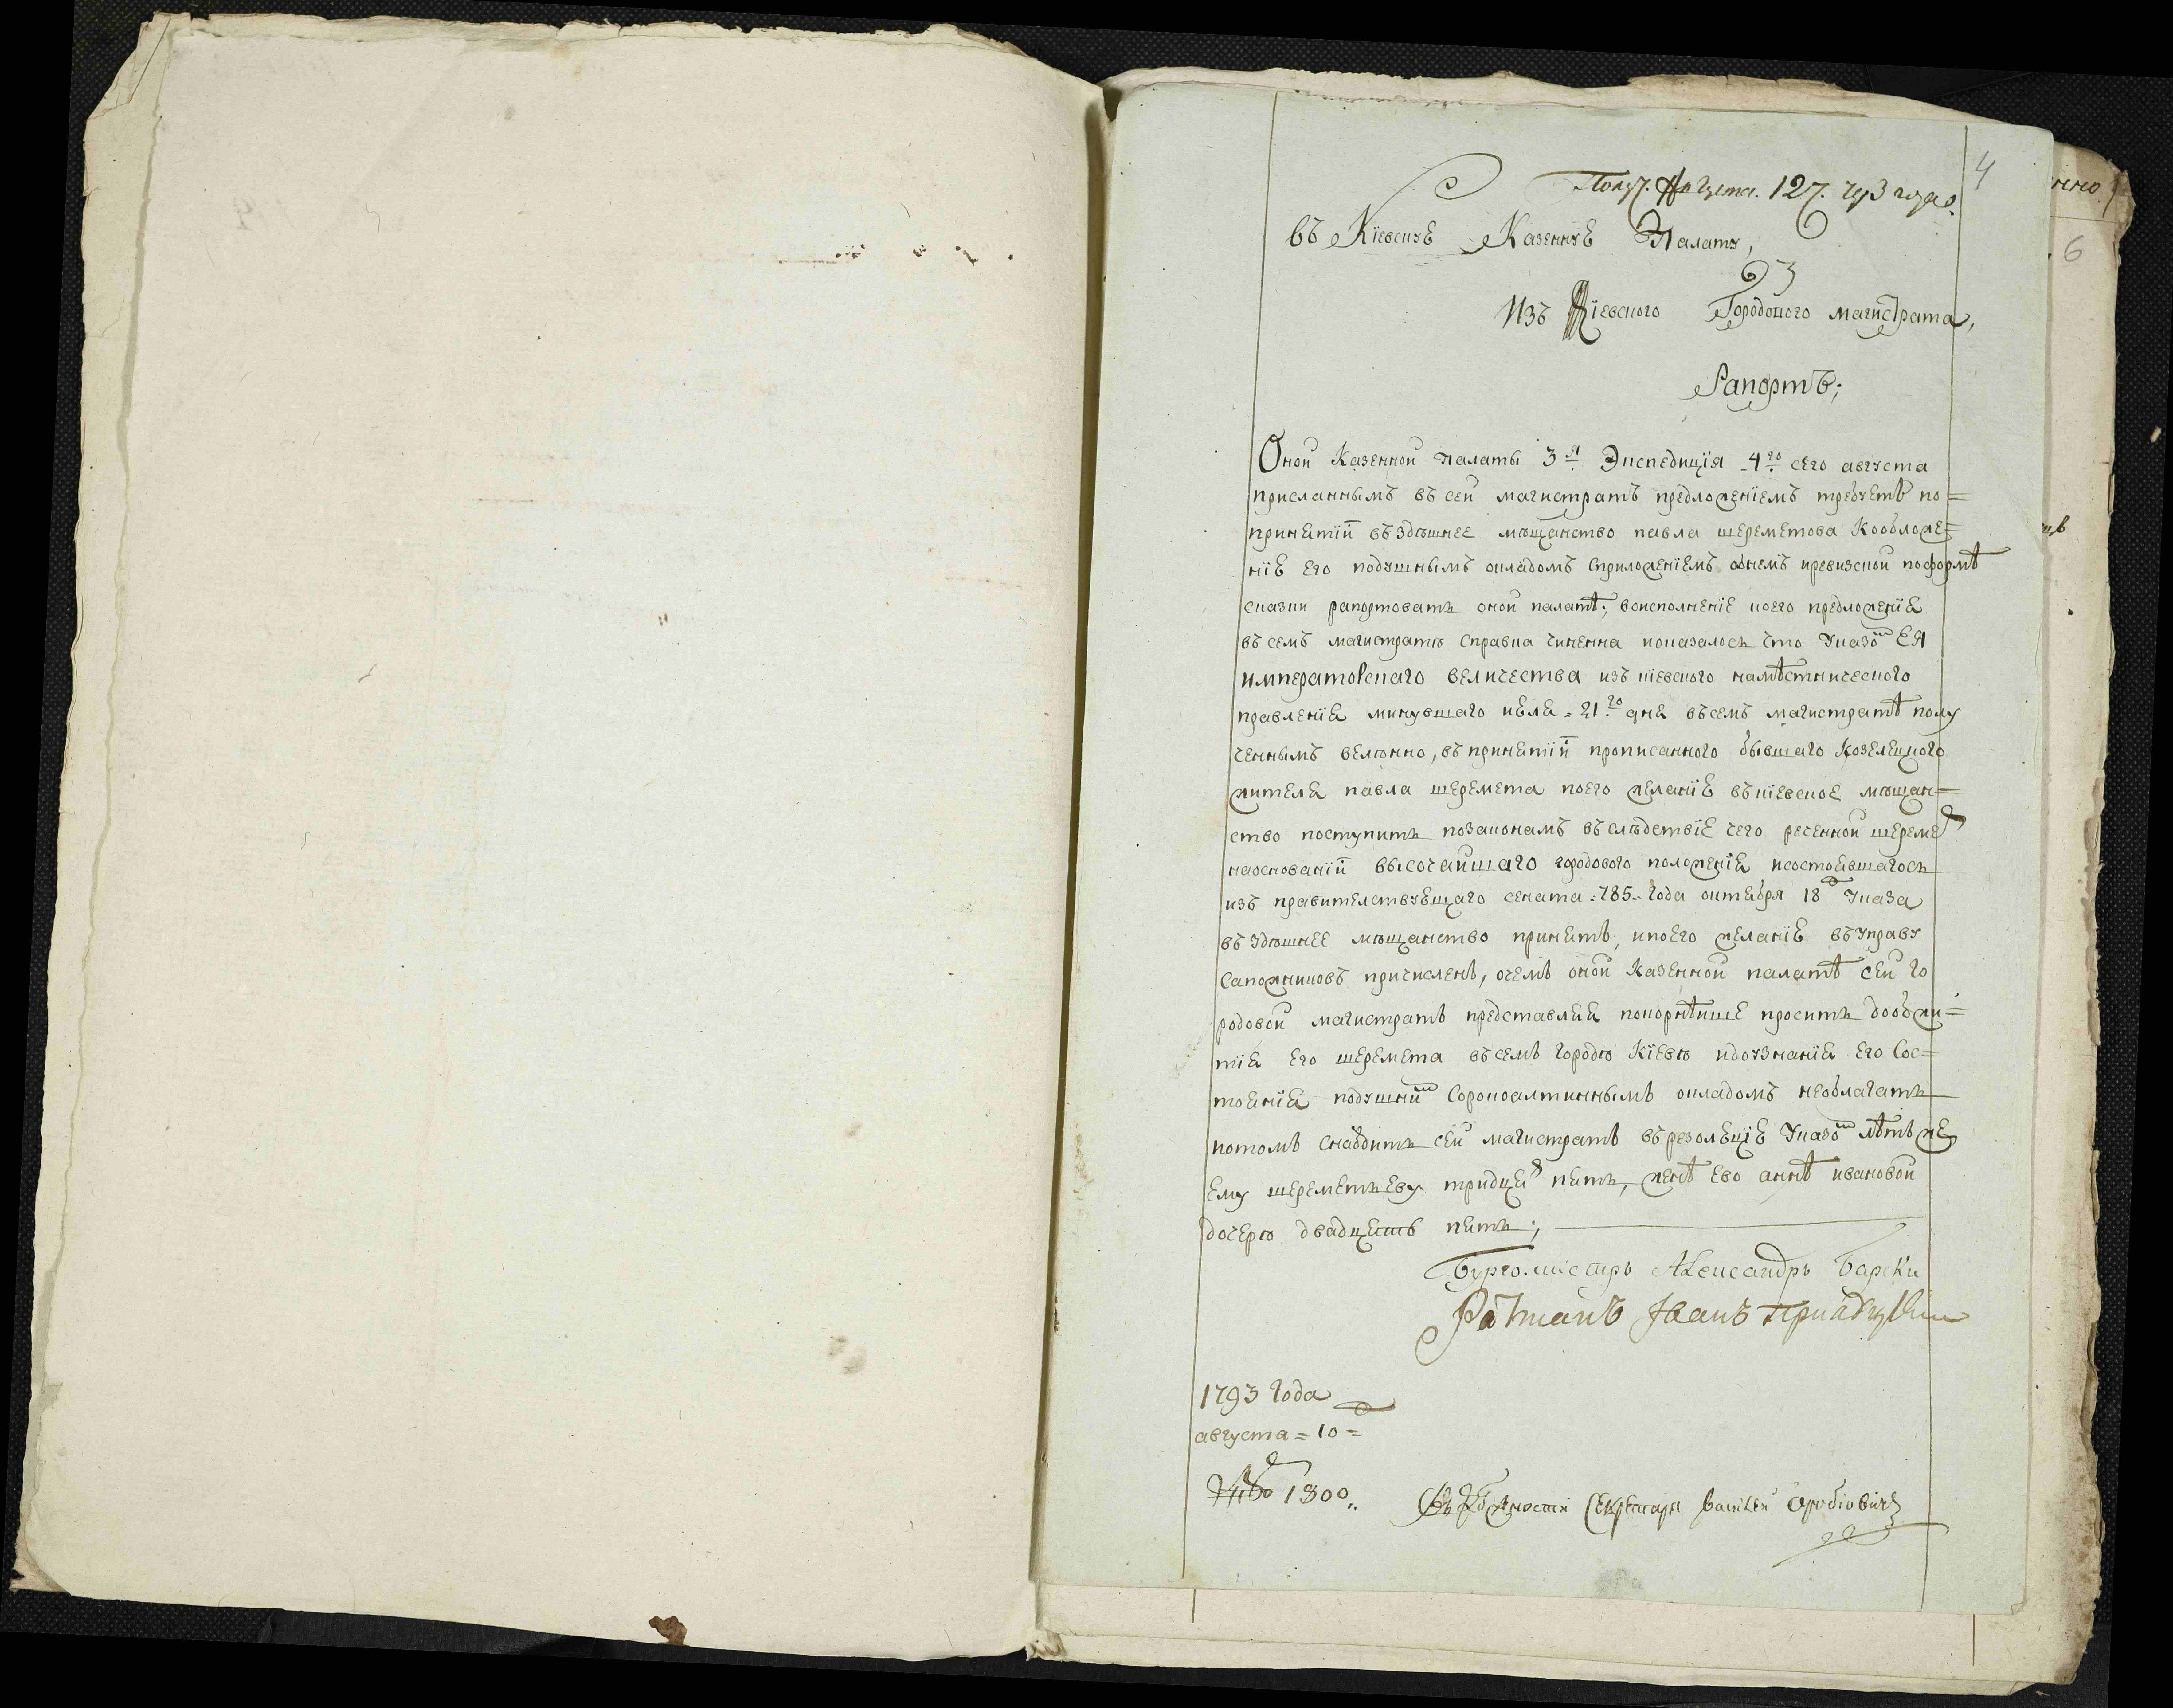 4
Получ. Августа. 12. 793 года.
въ Кіевскую Казенную Палату,
Изъ Кіевского Городового магистрата,
Рапортъ;
Оной Казенной палаты 3я Экспедиція 4го сего августа
присланнымъ въ сей магистратъ предложеніемъ требуетъ по=
принятіи въ здѣшнее мѣщанство павла шереметова Кообложе=
нію его подушнымъ окладомъ Сприложеніемъ онемъ иревизской поформѣ
сказки рапортовать оной палатѣ; воисполненіе коего предложенія
въ семъ магистратѣ Справка чиненна ипоказалось что Указомъ ЕЯ
императорскаго величества изъ кіевского намѣстнического
правленія минувшаго июля 21го дня въ семъ магистратѣ полу
ченнымъ велѣнно, въ принятіи прописанного бывшаго Козелецкого
жителя павла шеремета поего желанію въ кіевское мѣщан=
ство поступить позаконамъ въ слѣдствіе чего реченной шеремет
наоснованіи высочайшаго городового положенія исостоявшагось
изъ правителствующаго сената 785 года октября 18 Указа
въ здѣшнее мѣщанство принятъ, ипоего желанію въ управу
Сапожниковъ причисленъ, очемъ оной Казенной палатѣ сей го
родовой магистратъ представляя покорнѣише проситъ дообжи=
тія его шеремета въ семъ городѣ Кіевѣ идоузнанія его Сос=
тоянія подушнимъ Сорокоалтиннымъ окладомъ необлагать
потомъ снабдить сей магистратъ въ резолюцію Указомъ лѣтъ же
ему шереметьеву тридцять пять, женѣ ево аннѣ ивановой
дочерѣ двадцять пять;
Бургомистръ Александръ Барски
Ратманъ Іванъ
1793 года
августа = 10 =
1300
Въ должности Секретаря Василей
6